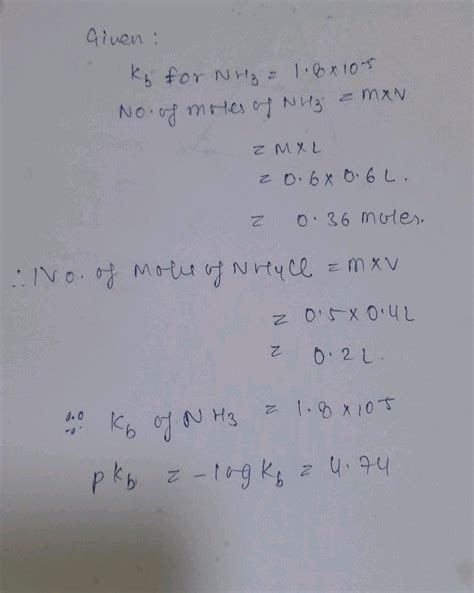 Given :
Kb for NH3 = 1.8×10-5
No. of moles of NH3 = M×V
= M×L
= 0.6×0.6L.
= 0.36 moles.
∴ No. of Moles of NH4Cl = M×V
= 0.5×0.4L
= 0.2L.
Kb of NH3 = 1.8×10-5
pKb = -log Kb = 4.74